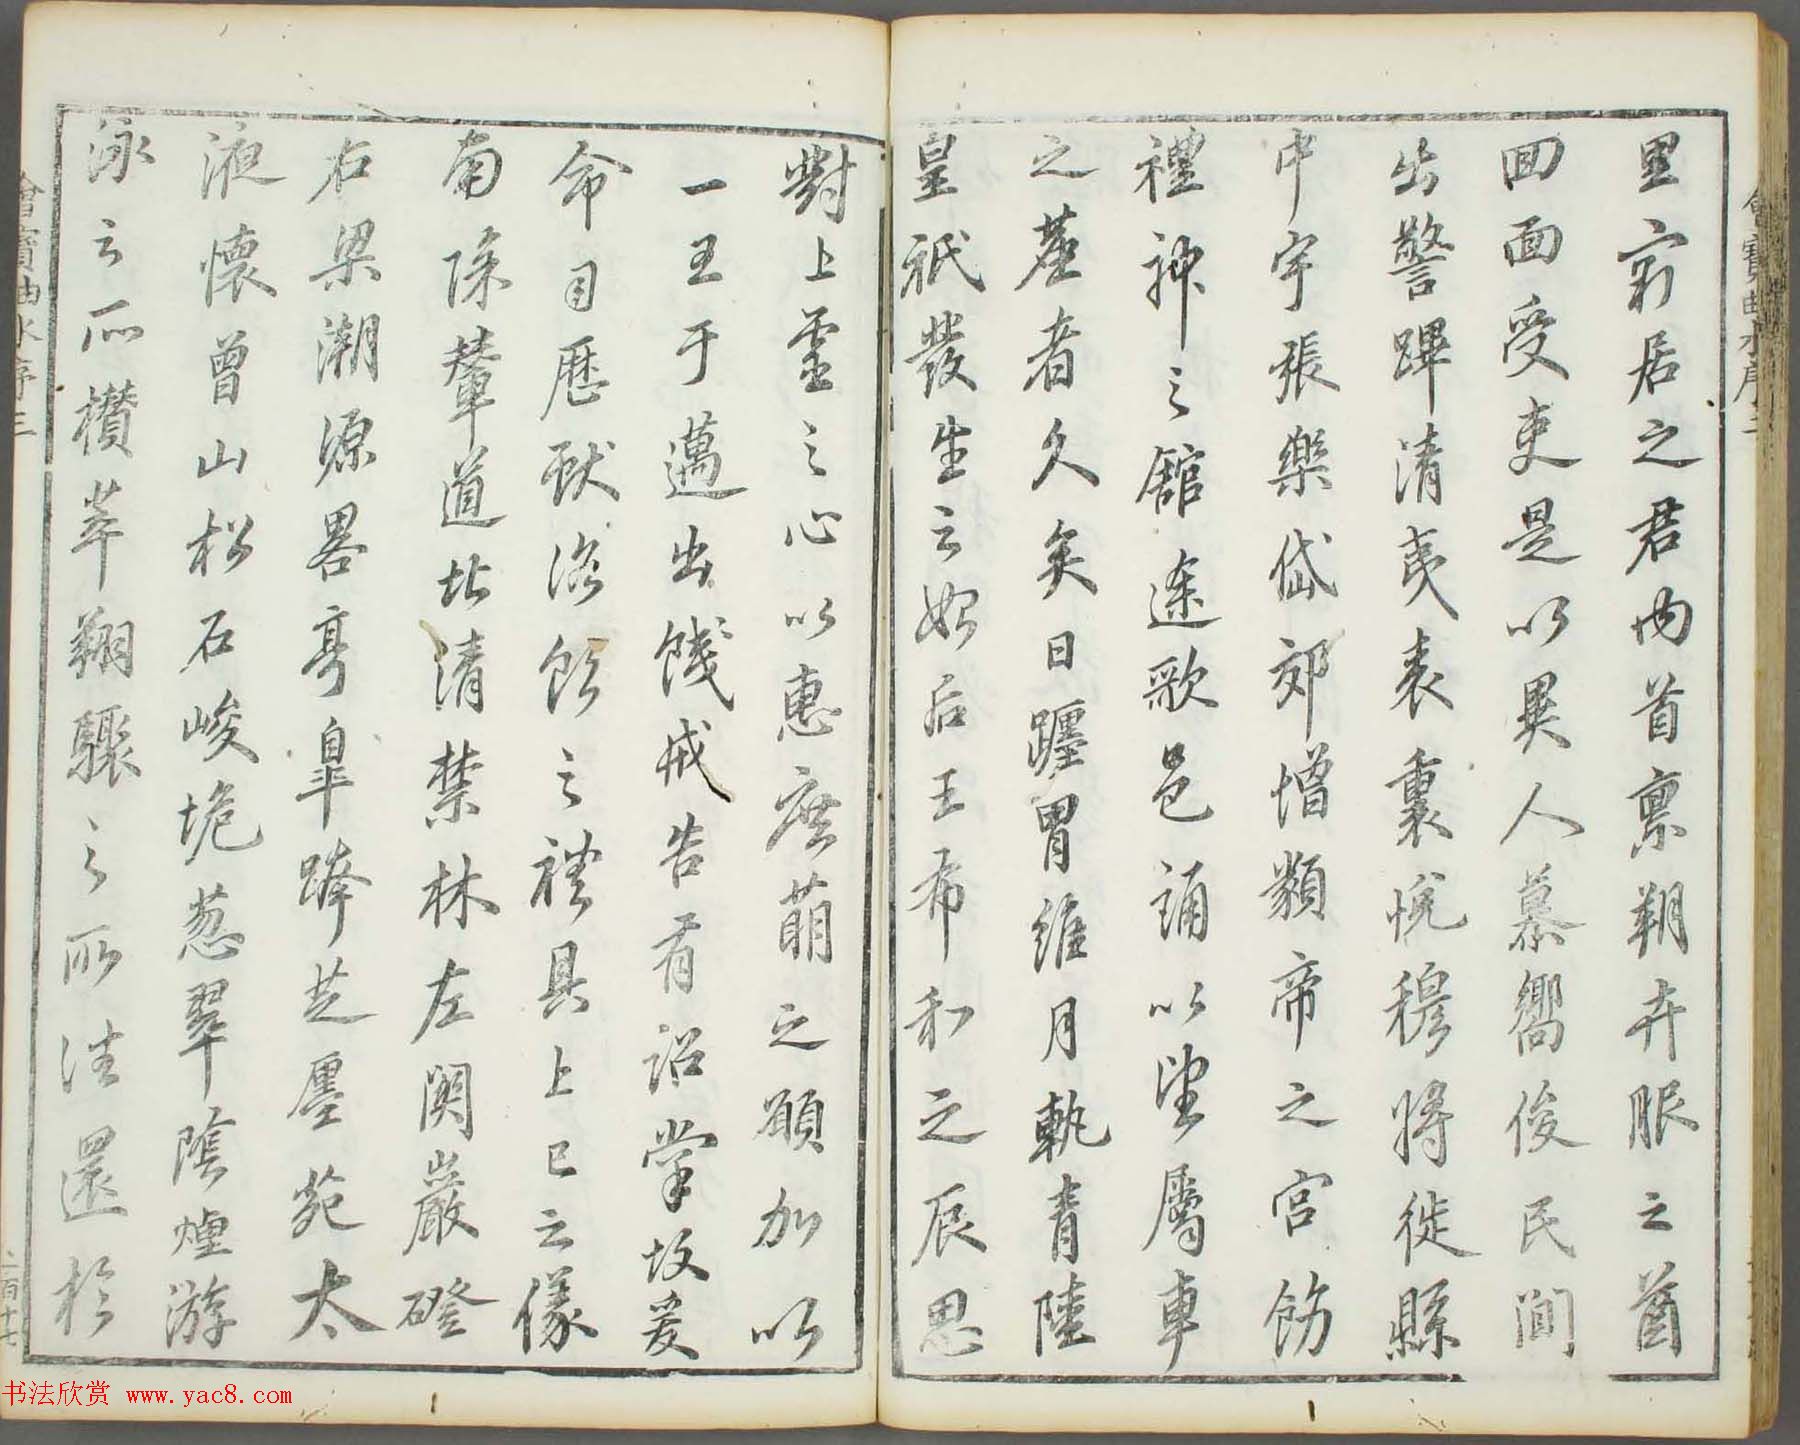 里窮居之君内首禀朔卉服之酋
回面受吏是以異人慕嚮俊民間
出警蹕清夷表裏悅穆將徙縣
中宇張樂岱郊增類帝之宮飭
禮神之館塗歌邑誦以望屬車
之塵者久矣日躔胃維月軌青陸
皇祇發生之始后王布和之辰思
對上靈之心以惠庶萌之願加以
一王于邁出餞戒告有詔掌故爰
命司歷獻洛飲之禮具上巳之儀
南除輦道北清禁林左關巖磴
右梁潮源畧亭皐跨芝廛苑太
液懷曾山松石峻垝葱翠陰煙游
泳之所攅萃翔驟之所往還於
書法欣賞 www.yac8.com